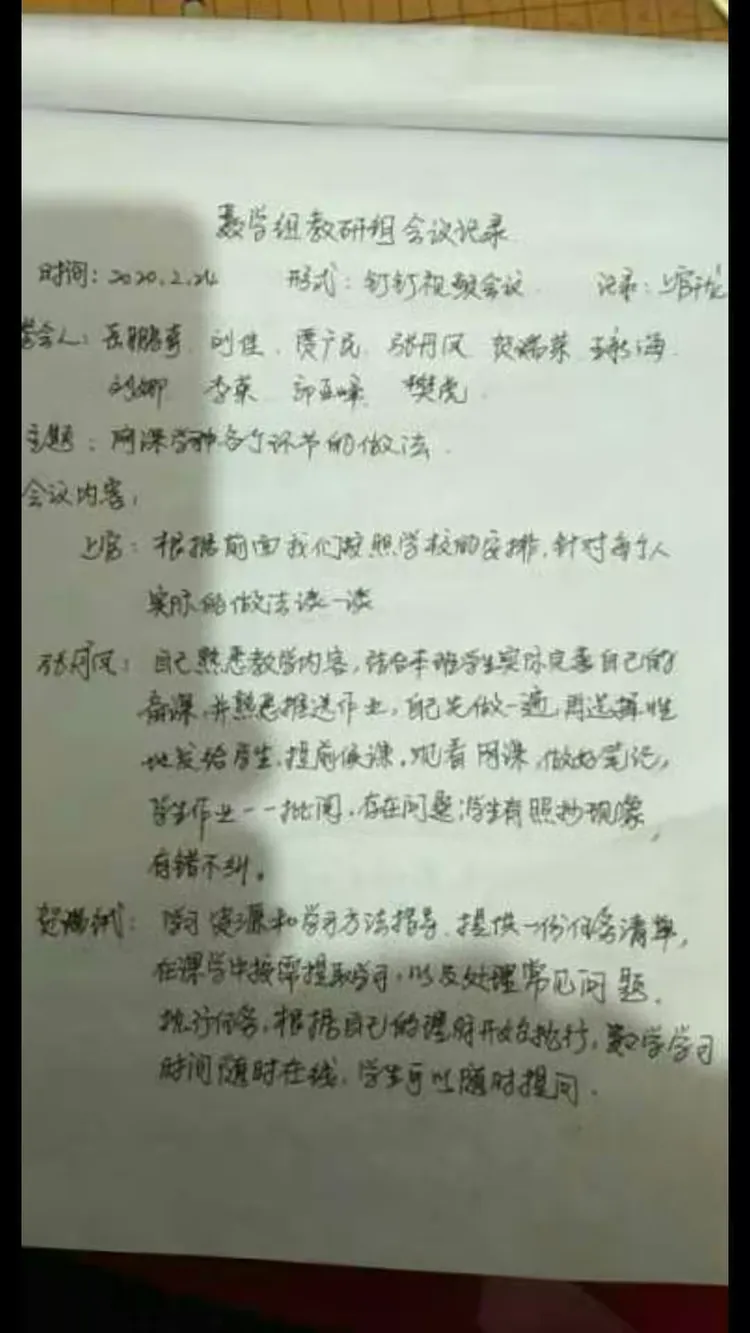 数学组教研组会议记录
时间：2020.2.24 形式：钉钉视频会议 记录：上官
会人：岳鹏 刘佳 贾广民 张丹凤 贺瑞 海
刘娜 李 郭 樊虎
主题：网课学各个环节的做法.
会议内容：
上官：根据前面我们按照学校的安排,针对每个人
实际的做法谈一谈
张丹凤：自己熟悉教学内容,结合本班学生实际完善自己的
备课,并熟悉推送作业,自己先做一遍,再选择性
地发给学生,提前候课,观看网课,做好笔记,
学生作业一一批阅,存在问题:学生有照抄现象,
有错不纠。
贺瑞：学习资源和学习方法指导.提供一份任务清单,
在课学中按需提取学习,以及处理常见问题.
执行任务,根据自己的执行,数学学习
时间随时在线.学生可以随时提问.